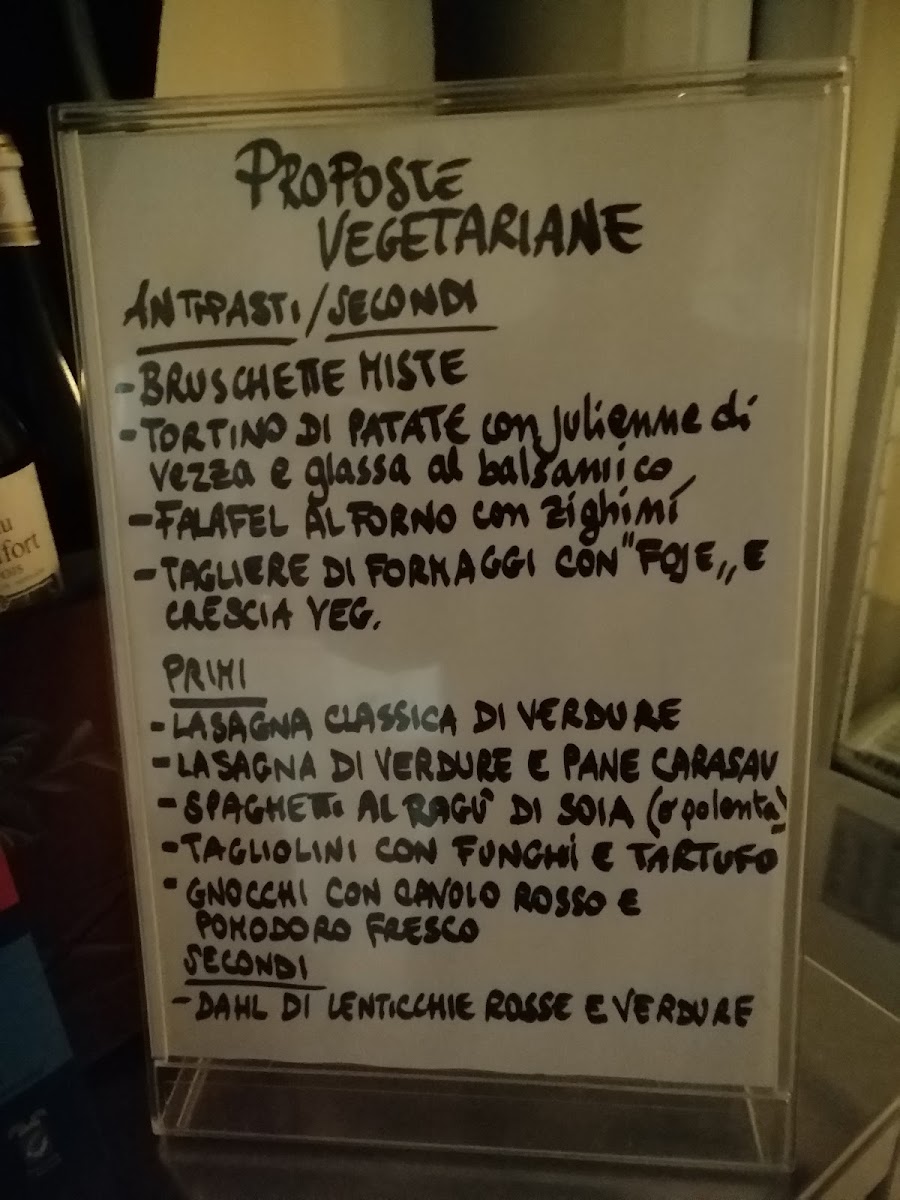 PROPOSTE
VEGETARIANE
ANTIPASTI/SECONDI
-BRUSCHETTE MISTE
-TORTINO DI PATATE con julienne di
vezza e glassa al balsamico
-FALAFEL AL FORNO con zighimí
-TAGLIERE DI FORMAGGI CON "FOJE„ E
CRESCIA VEG.
PRIMI
-LASAGNA CLASSICA DI VERDURE
-LASAGNA DI VERDURE E PANE CARASAU
-SPAGHETTI AL RAGÙ DI SOIA (o polenta)
-TAGLIOLINI CON FUNGHI E TARTUFO
-GNOCCHI CON CAVOLO ROSSO E
POMODORO FRESCO
SECONDI
-DAHL DI LENTICCHIE ROSSE E VERDURE